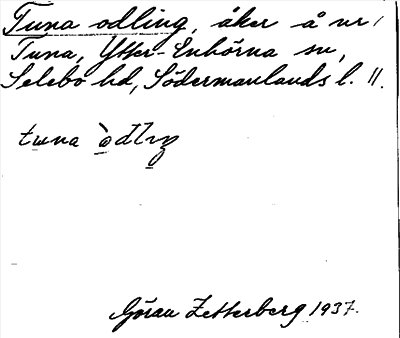 Tuna odling, åker å nr 1
Tuna, Ytter-Enhörna sn,
Selebo hd, Södermanlands l. 11.
tuna òdlıŋ
Göran Zetterberg 1937.